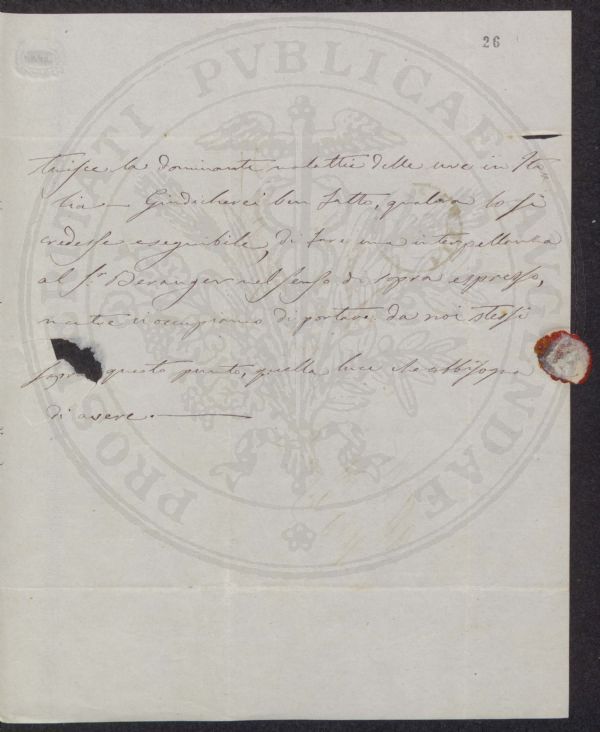 26
PROSPERITATI PVBLICAE AVGENDAE
tuisce la dominante malattia delle uve in Ita=
lia — Giudicherei ben fatto, qualora lo si
credesse eseguibile, di fare una interpellanza
al S.r Beranger nel senso di sopra espresso,
mentre ci occupiamo di portare da noi stessi
sopra questo punto, quella luce che abbisogna
di avere. —